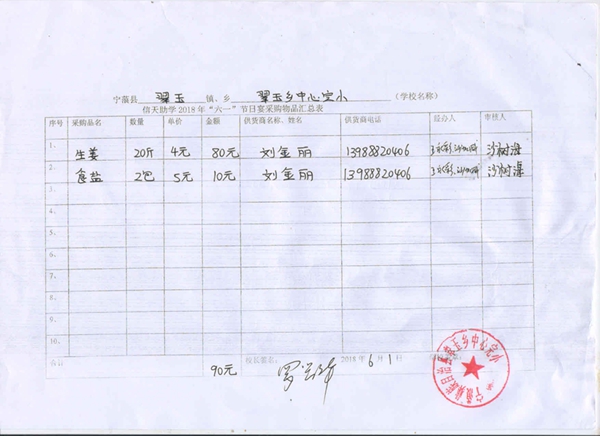 宁蒗县 翠玉 镇、乡 翠玉乡中心完小 (学校名称)
信天助学 2018 年 "六一" 节日宴采购物品汇总表
序号 采购品名 数量 单价 金额 供货商名、姓名 供货商电话 经办人 审核人
1、 生姜 20斤 4元 80元 刘金丽 13988820406
2、 食盐 2包 5元 10元 刘金丽 13988820406
3、
4、
5、
6、
7、
8、
9、
10、
合计 90元 校长签名: 2018 年 6 月 1 日